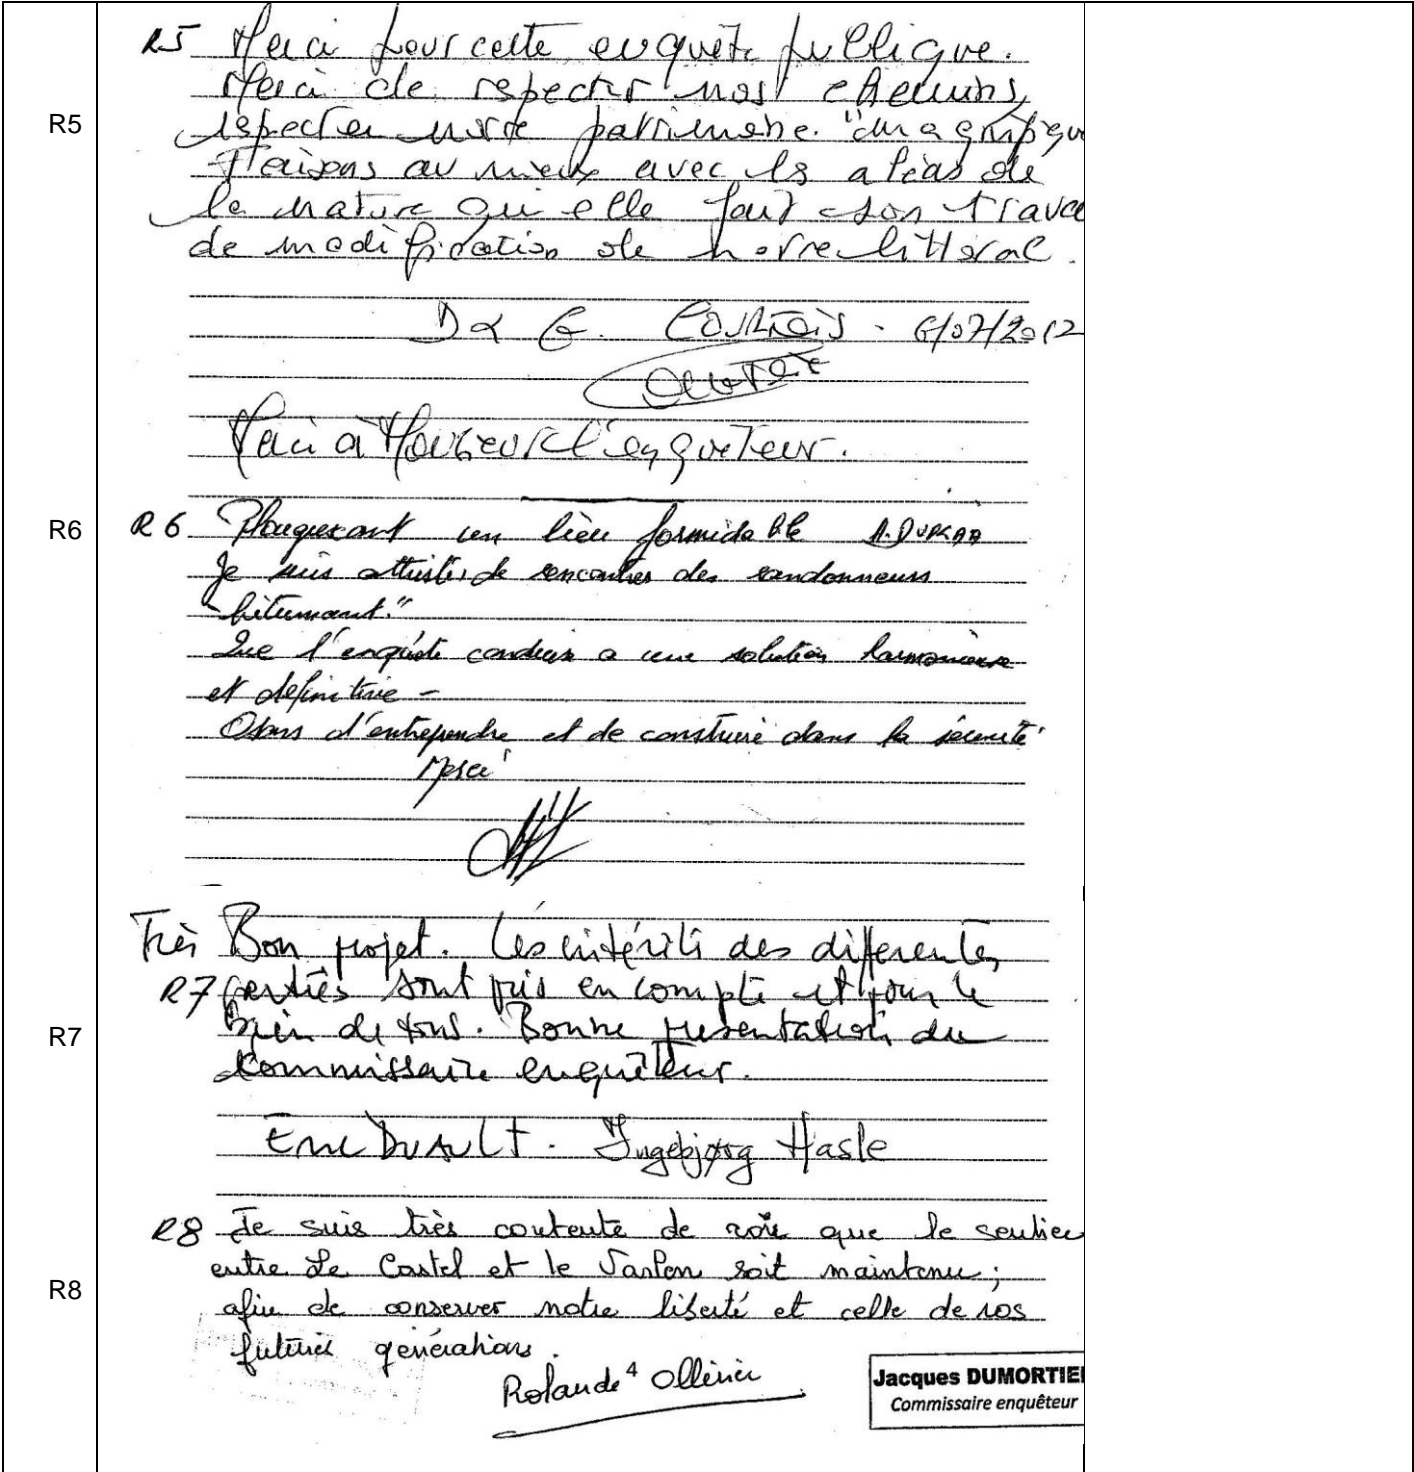 R5 R5 Merci pour cette enquête publique.
Merci de respecter nos chemins,
respecter notre patrimoine. "magnifique
Faisons au mieux avec les aléas de
la nature qui elle fait son trava
de modification de notre littoral.
D & G. 6/07/2012
Merci à Monsieur l'enquêteur.
R6 R6 Plougrescant un lieu formidable A.
Je suis attristé de rencontrer des randonneurs
"bitumant."
Que l'enquête conduise a une solution harmonieuse
et definitive -
Osons d'entreprendre et de construire dans la sécurité
Merci
Très Bon projet. Les intérêts des differentes
R7 parties sont pris en compte et pour le
R7 bien de tous. Bonne presentation du
Commissaire enquêteur.
Eric Duault. Ingebjørg Hasle
R8 Je suis très contente de voir que le sentier
entre Le Castel et le soit maintenu;
R8 afin de conserver notre liberté et celle de nos
futures générations.
Rolande 4 Ollivier
Jacques DUMORTIE
Commissaire enquêteur